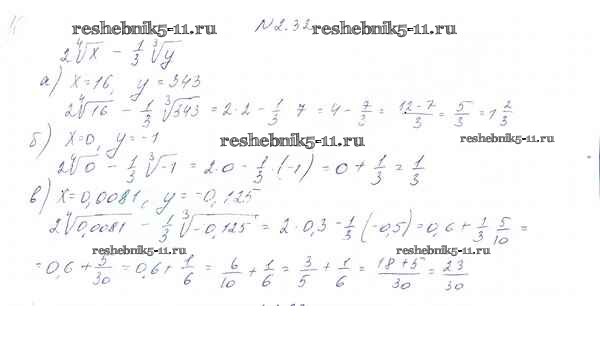 reshebnik5-11.ru №2.32 reshebnik5-11.ru
2∜x − 1/3 ∛y
а) x=16, y=343
2∜16 − 1/3 ∛343 = 2·2 − 1/3 · 7 = 4 − 7/3 = (12−7)/3 = 5/3 = 1 2/3
б) x=0, y=−1 reshebnik5-11.ru reshebnik5-11.ru
2∜0 − 1/3 ∛−1 = 2·0 − 1/3 · (−1) = 0 + 1/3 = 1/3
в) x=0,0081, y=−0,125
2∜0,0081 − 1/3 ∛−0,125 = 2·0,3 − 1/3 (−0,5) = 0,6 + 1/3 · 5/10 =
reshebnik5-11.ru reshebnik5-11.ru
= 0,6 + 5/30 = 0,6 + 1/6 = 6/10 + 1/6 = 3/5 + 1/6 = (18+5)/30 = 23/30